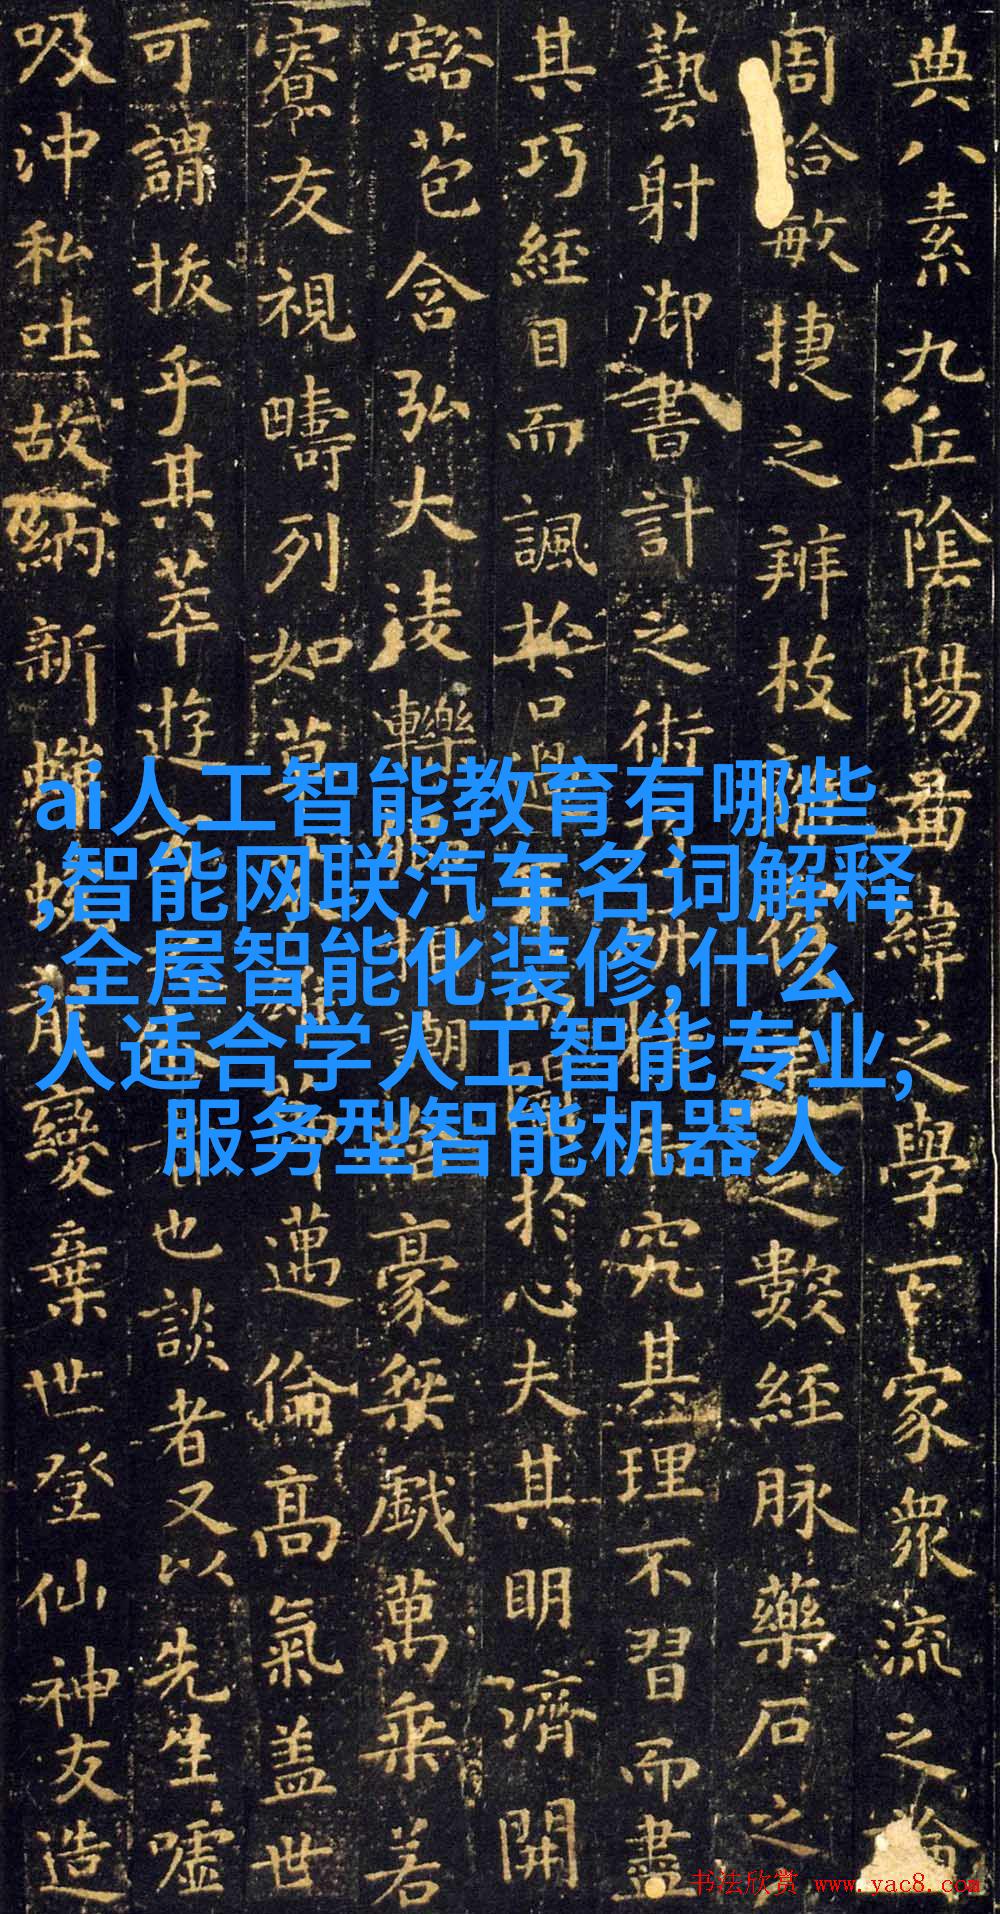 典八素九丘陰陽圖緯之學百家衆流之論
周給敏捷之辨枝之數經脉藥石之
藝射御書計之術究其理不習而盡
其巧經目而諷於口過於心夫其明濟開
豁苞含弘大淩轢謿豪桀戯萬乘若
寮友視疇列如草邁倫高氣蓋世
可謂拔乎其萃遊也談者又以先生噓
吸沖和吐故納新龍變棄世登仙神友造
ai人工智能教育有哪些
,智能网联汽车名词解释
,全屋智能化装修,什么
人适合学人工智能专业,
服务型智能机器人
书法欣赏 www.yac8.com